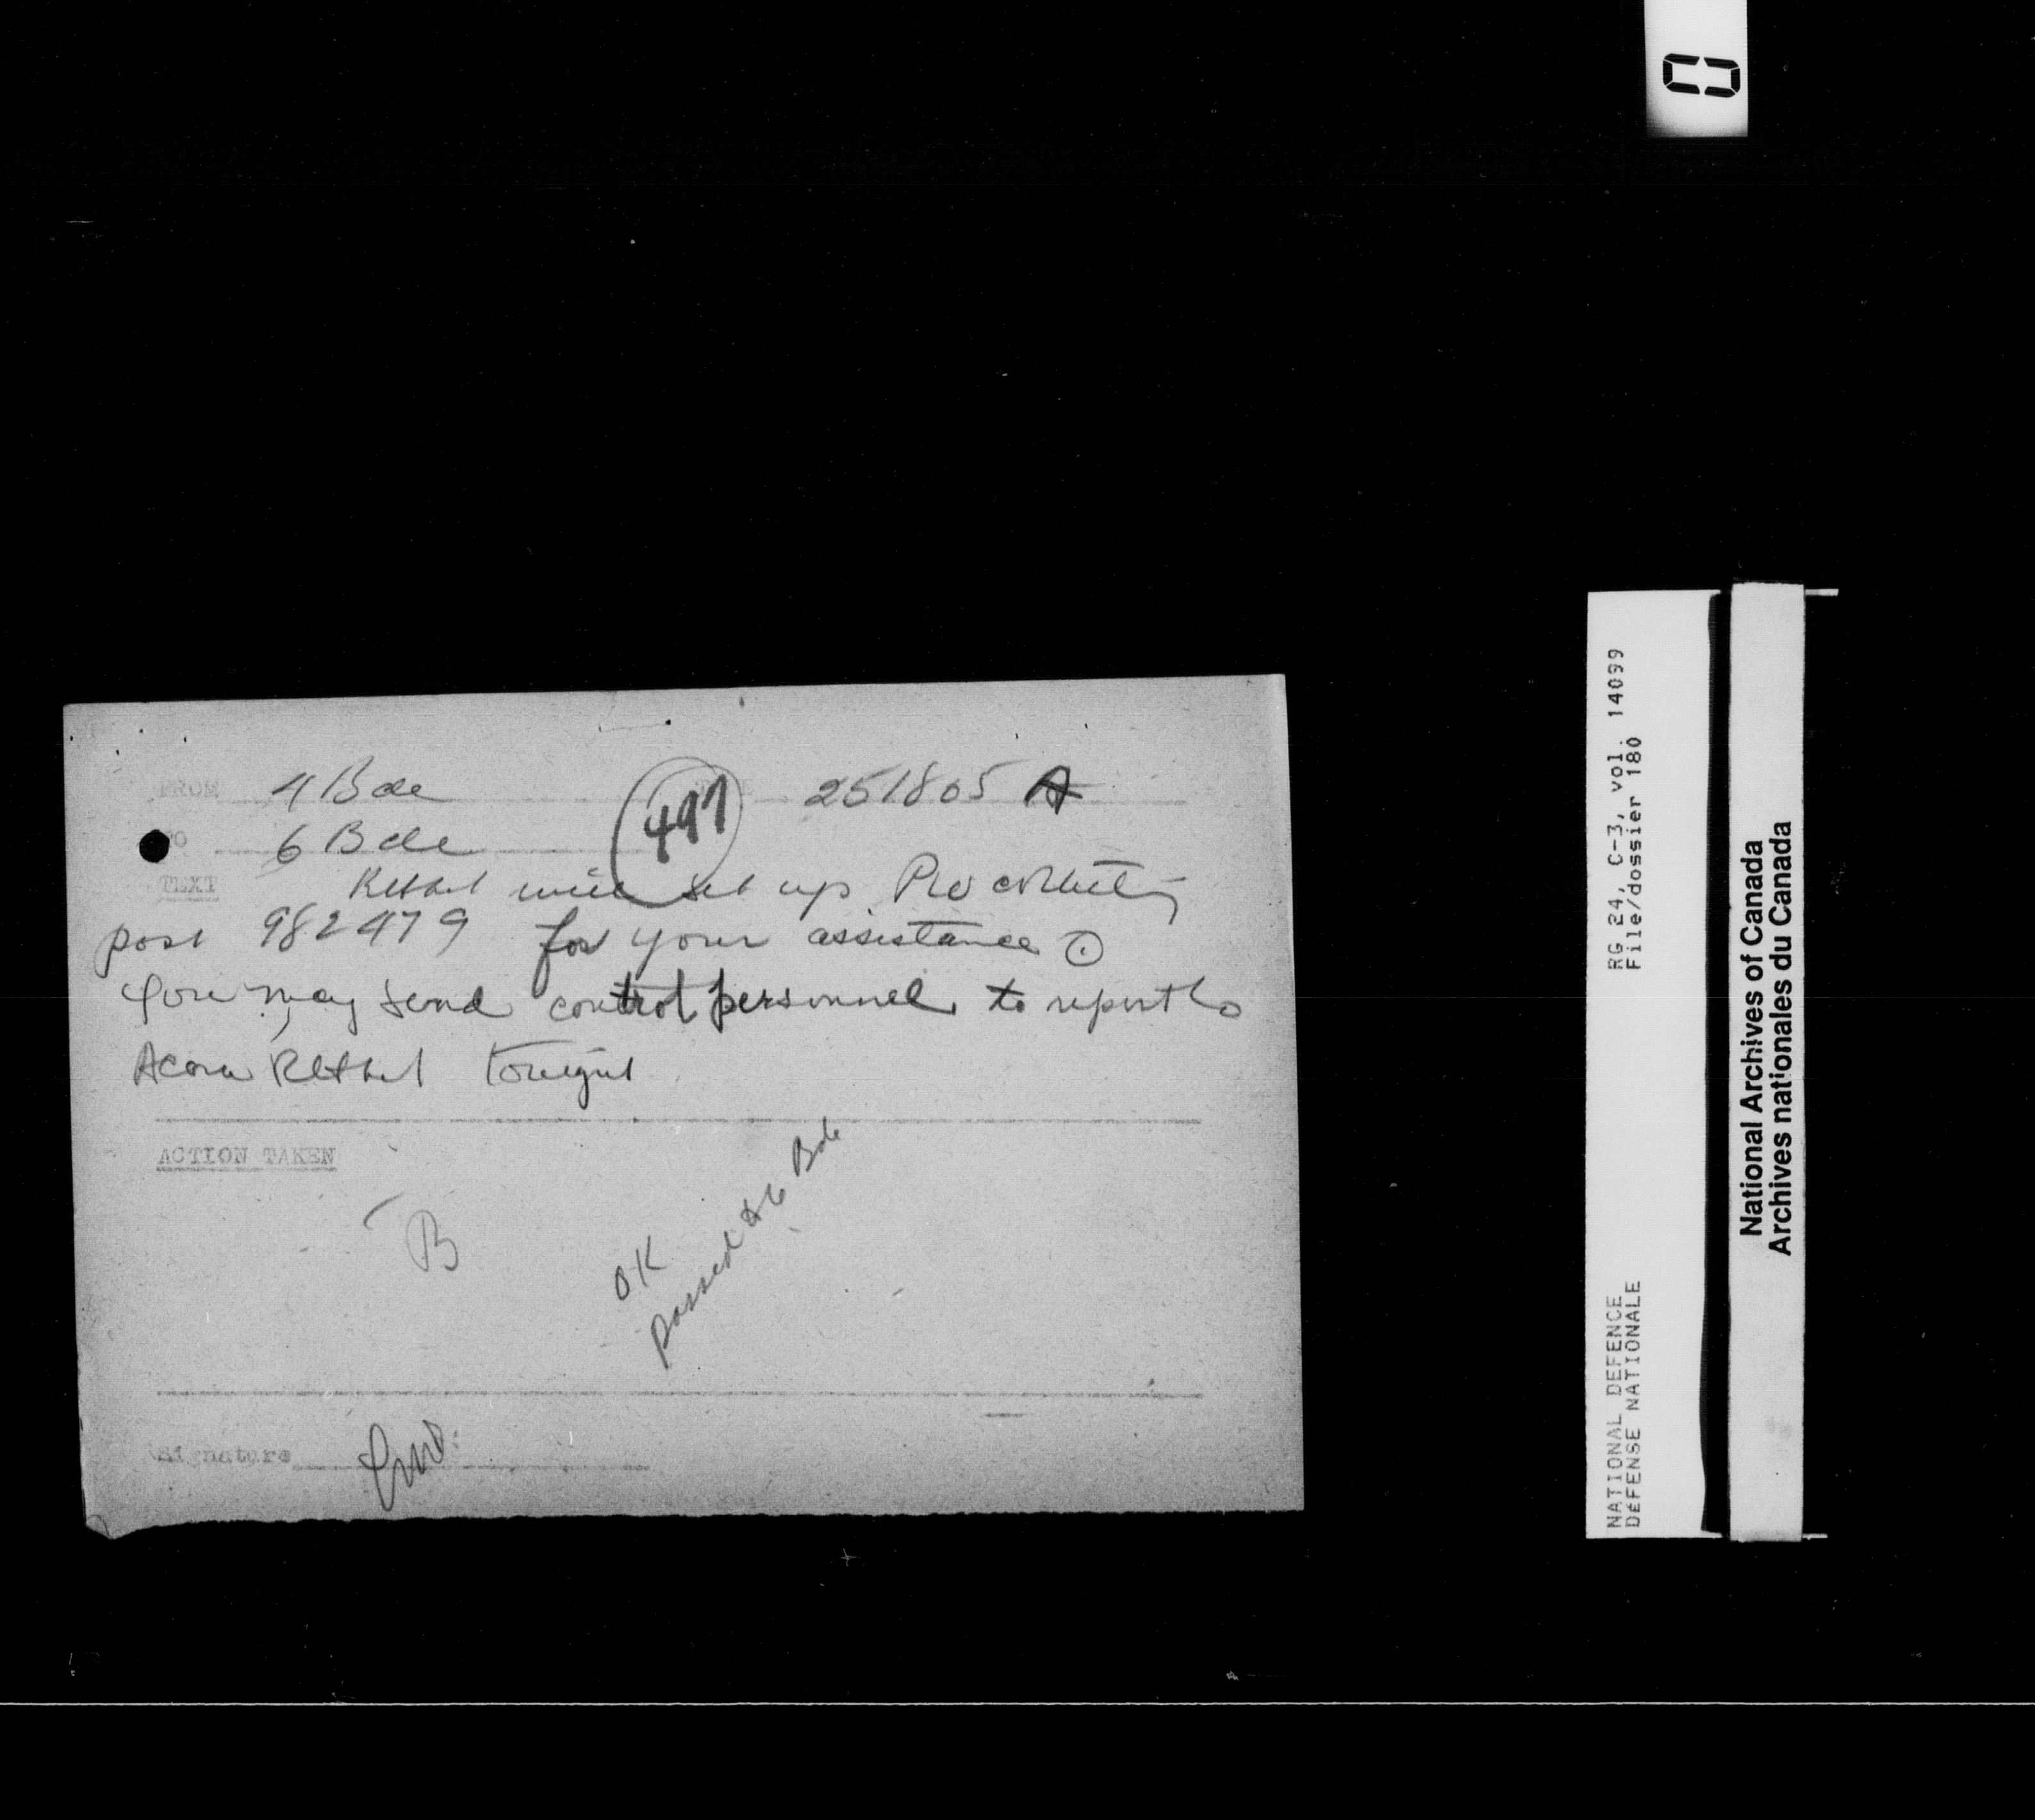 FROM 4 Bde TIME 251805 A
497
TO 6 Bde
TEXT will set up collecting
post 982479 for your assistance ⊙
you may send control personnel to report to
Acorn tonight
ACTION TAKEN
B
OK
passed to 6 Bde
Signature
0
RG 24, C-3, vol. 14099
File/dossier 180
NATIONAL DEFENCE
DÉFENSE NATIONALE
National Archives of Canada
Archives nationales du Canada